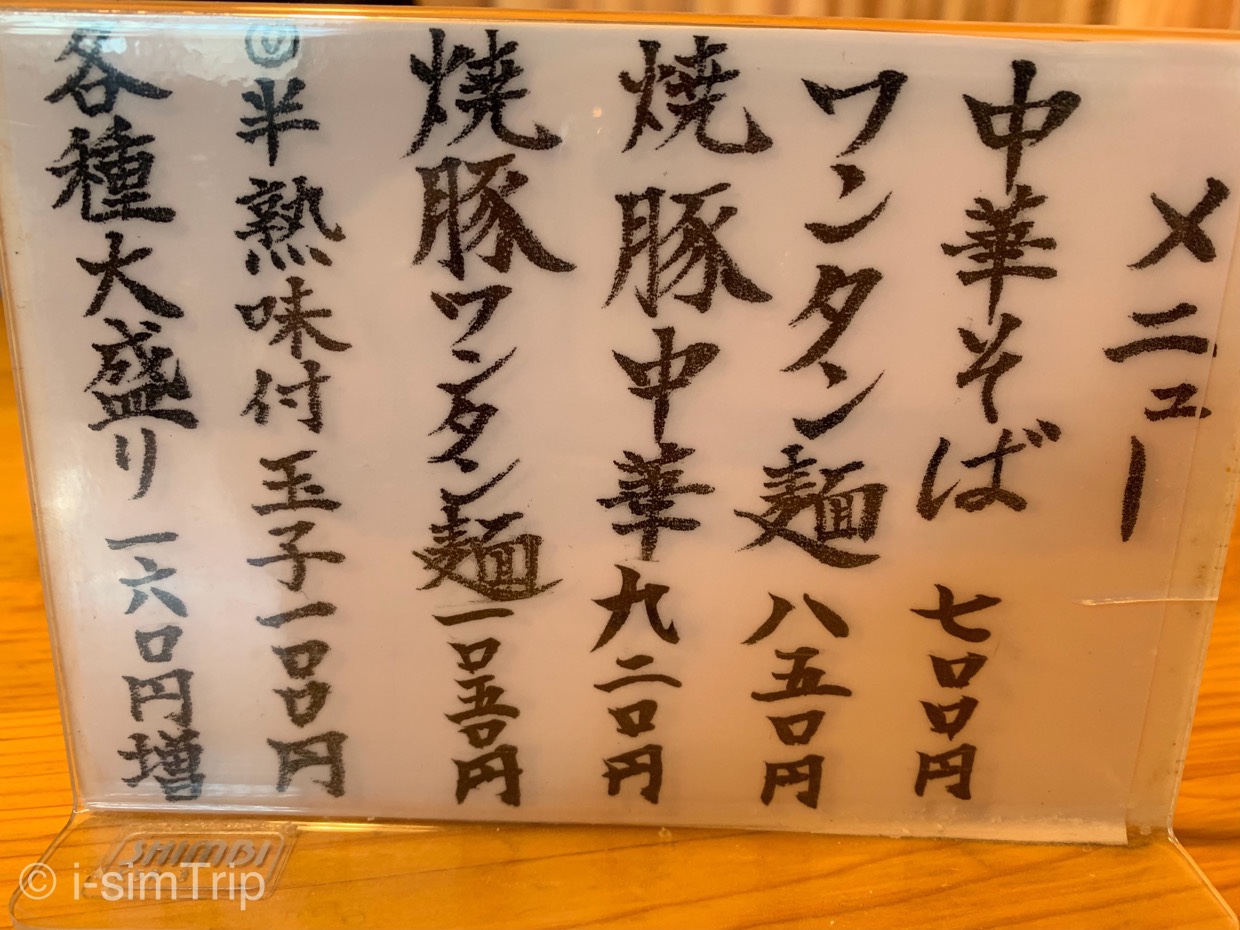 メニュー
中華そば 七〇〇円
ワンタン麺 八五〇円
焼豚中華 九二〇円
焼豚ワンタン麺 一〇五〇円
半熟味付玉子 一〇〇円
各種大盛り 一六〇円増
SHIMBI
© i-simTrip